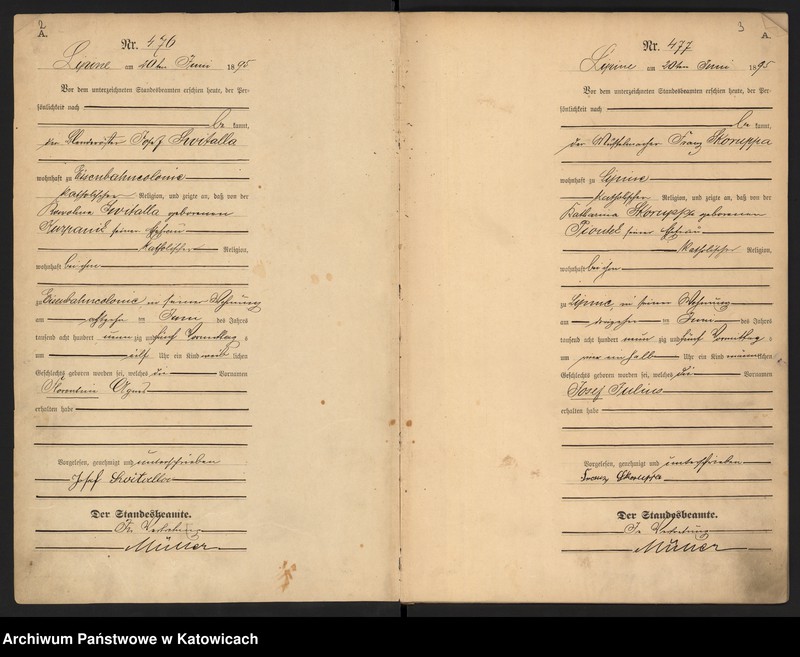 2
A.
Nr. 476
Lipine am 20ten Juni 1895
Vor dem unterzeichneten Standesbeamten erschien heute, der Per-
sönlichkeit nach
be kannt,
der Josef Switalla
wohnhaft zu Eisenbahncolonie
katholischer Religion, und zeigte an, daß von der
Karoline Switalla geborenen
seiner Ehefrau
katholischer Religion,
wohnhaft bei ihm
zu Eisenbahncolonie in seiner Wohnung
am achtzehn ten Juni des Jahres
tausend acht hundert neun zig und fünf Vormittag s
um elf Uhr ein Kind weib lichen
Geschlechts geboren worden sei, welches die Vornamen
Agnes
erhalten habe
Vorgelesen, genehmigt und unterschrieben
Josef Switalla
Der Standesbeamte.
In Vertretung
Müller
3
A.
Nr. 477
Lipine am 20ten Juni 1895
Vor dem unterzeichneten Standesbeamten erschien heute, der Per-
sönlichkeit nach
be kannt,
der Franz Skoruppa
wohnhaft zu Lipine
katholischer Religion, und zeigte an, daß von der
Katharina Skoruppa geborenen
seiner Ehefrau
katholischer Religion,
wohnhaft bei ihm
zu Lipine, in seiner Wohnung
am ten Juni des Jahres
tausend acht hundert neun zig und fünf Vormittag s
um einhalb Uhr ein Kind männ lichen
Geschlechts geboren worden sei, welches die Vornamen
Josef Julius
erhalten habe
Vorgelesen, genehmigt und unterschrieben
Franz Skoruppa
Der Standesbeamte.
In Vertretung
Müller
Archiwum Państwowe w Katowicach